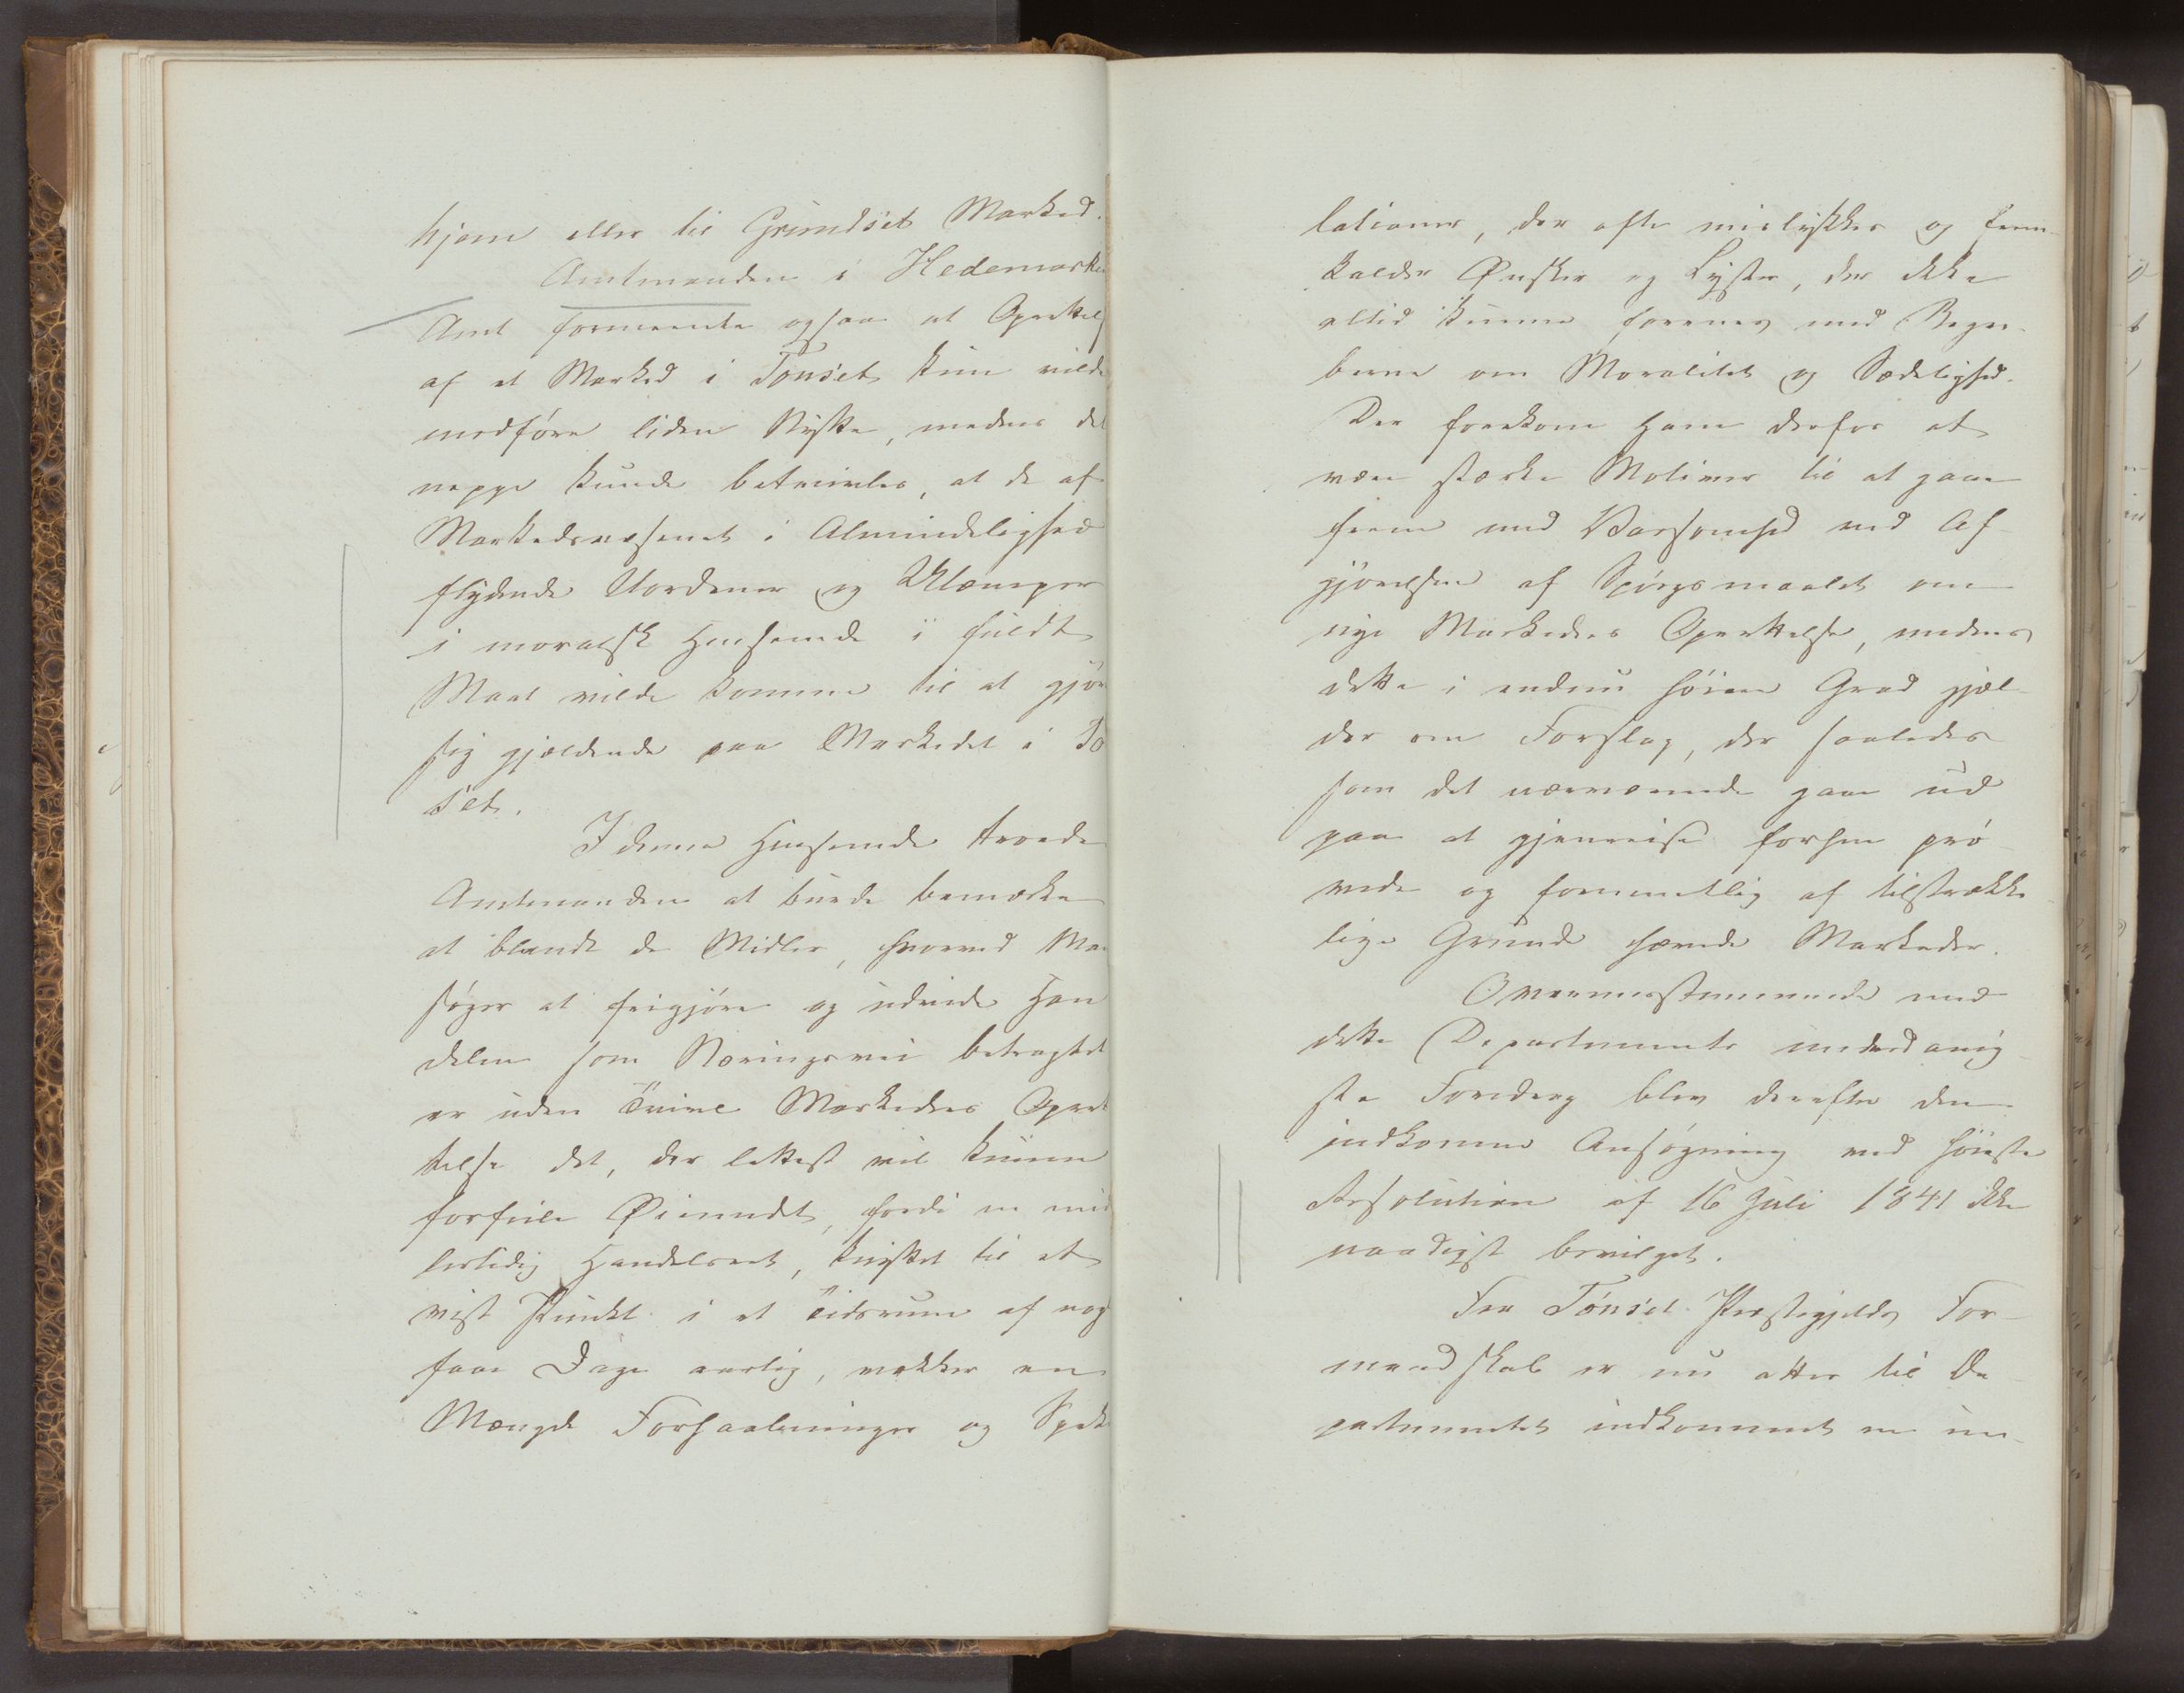 hjem eller til Grundsæt Marked.
Amtmanden i Hedemarkens
Amt formeente ogsaa at Oprettelse
af et Marked i Tønsæt kun vilde
medføre liden Nytte, medens det
neppe kunde betvivles, at de af
Markedsvæsenet i Almindelighed
flydende Uordener og Ulæmper
i moralsk Henseende i fuldt
Maal vilde komme til at gjøre
sig gjældende paa Markedet i Tø
sæt.
I denne Henseende troede
Amtmanden at burde bemærke
at blandt de Midler, hvorved Man
søger at frigjøre og udvide Han
delen som Næringsvei betragtet
er uden Tvivl Markeders Opret
telse det, der lettest vil kunne
forfeile Øiemedt, fordi en mid
lertidig Handelsret, knyttet til et
vist Punkt i et Tidsrum af nog
faae Dage aarlig, vækker en
Mængde Forhaabninger og Speku
lationer, der ofte mislykkes og frem-
kalder Ønsker og Lyster, der ikke
altid kunne forenes med Begre-
berne om Moralitet og Sædelighed.
Der forekom ham derfor at
være stærke Motiver til at gaae
frem med Varsomhed ved Af-
gjørelsen af Spørgsmaalet om
nye Markeders Oprettelse, medens
dette i endnu høiere Grad gjæl-
der om Forslag, der saaledes
som det nærværende gaae ud
paa at gjenreise forhen prø-
vede og formentlig af tilstrække
lige Grunde hævede Markeder.
Overeensstemmende med
dette Departements underdanig-
ste Foredrag blev derefter den
indkomne Ansøgning ved høieste
Resolution af 16 Juli 1841 ikke
naadigst bevilget.
Fra Tønsæt Præstegjelds For-
mandskab er nu atter til De-
partementet indkommet en un-